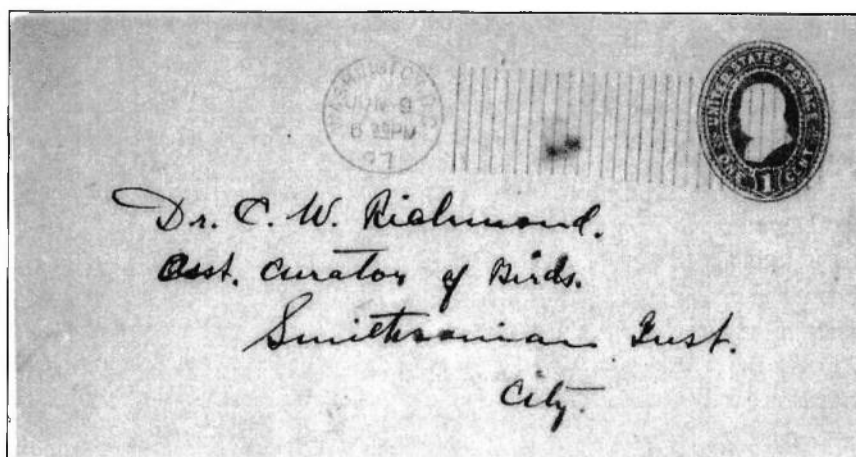 WASHINGTON, D.C.
JUN 9
PM
97
UNITED STATES POSTAGE
ONE 1 CENT
Dr. C. W. Richmond.
Asst. Curator of Birds.
Smithsonian Inst.
City.